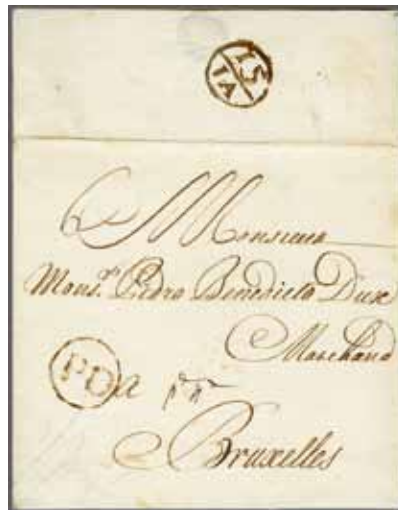 15
IA
Monsieur
Mons.r Pedro Benedicto Dux
Marchand
PD a
Bruxelles